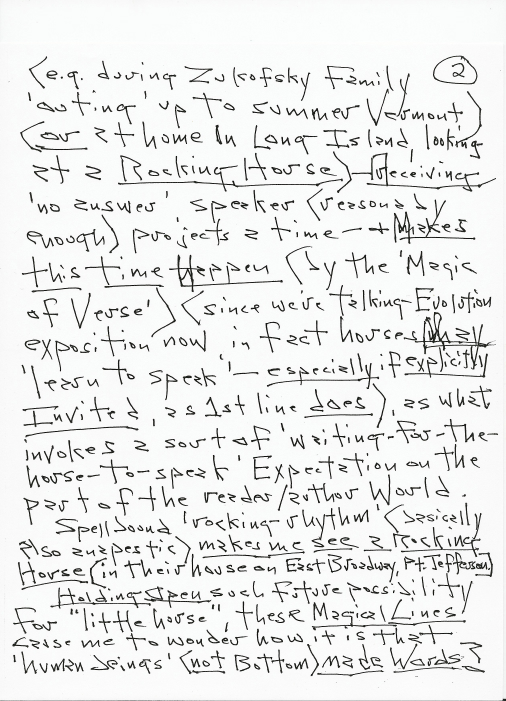 (e.g. during Zukofsky Family (2)
'outing' up to summer Vermont)
(or at home in Long Island looking
at a Rocking House)—Receiving
'no answer' speaker (reasonably
enough) projects a time—+ Makes
this time Happen (by the 'Magic
of Verse') (since we're talking-Evolution
exposition now 'in fact houses May
'learn to speak'—especially if explicitly
Invited, as 1st line does), as what
invokes a sort of 'waiting-for-the-
house-to-speak' Expectation on the
part of the reader/author World.
Spellbound 'rocking-rhythm' (basically
also anapestic) makes me see a Rocking
House (in their house on East Broadway, Pt. Jefferson)
Holding Open such future possibility
for "little house", these Magical Lines!
cause me to wonder how it is that
'human beings' (not Bottom) made Words?